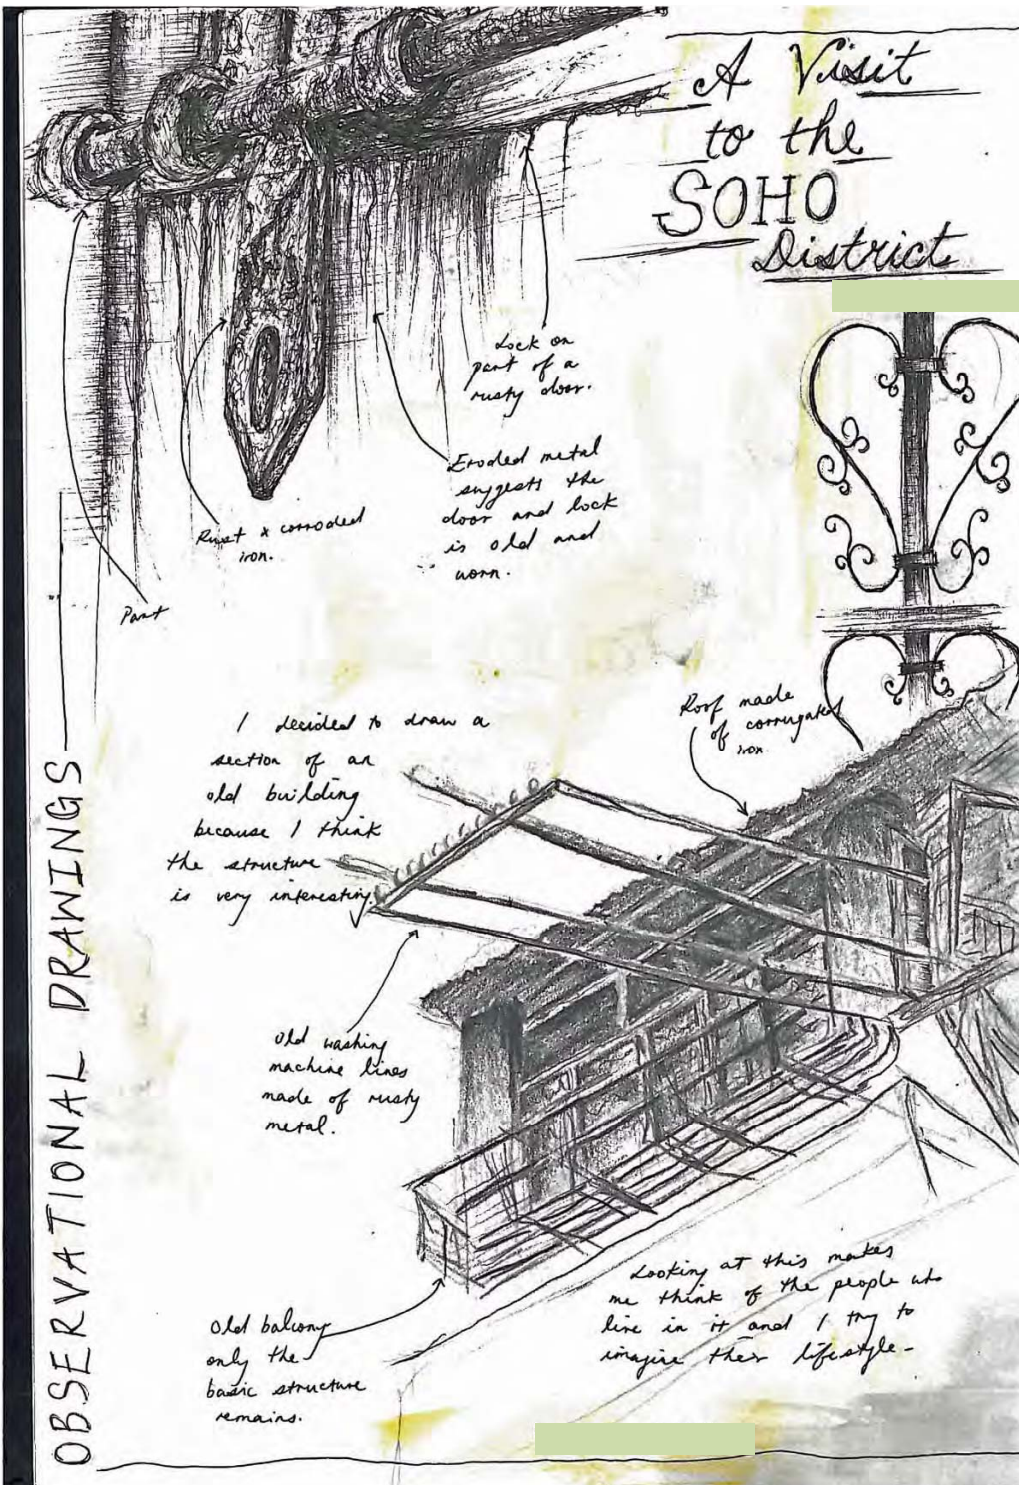 A Visit
to the
SOHO
District
Lock on
part of a
rusty door.
Eroded metal
suggests the
door and lock
is old and
worn.
Rust & corroded
iron.
Part
I decided to draw a
section of an
old building
because I think
the structure
is very interesting.
Roof made
of corrugated
iron.
Old washing
machine lines
made of rusty
metal.
Old balcony
only the
basic structure
remains.
Looking at this makes
me think of the people who
live in it and I try to
imagine their lifestyle-
OBSERVATIONAL DRAWINGS